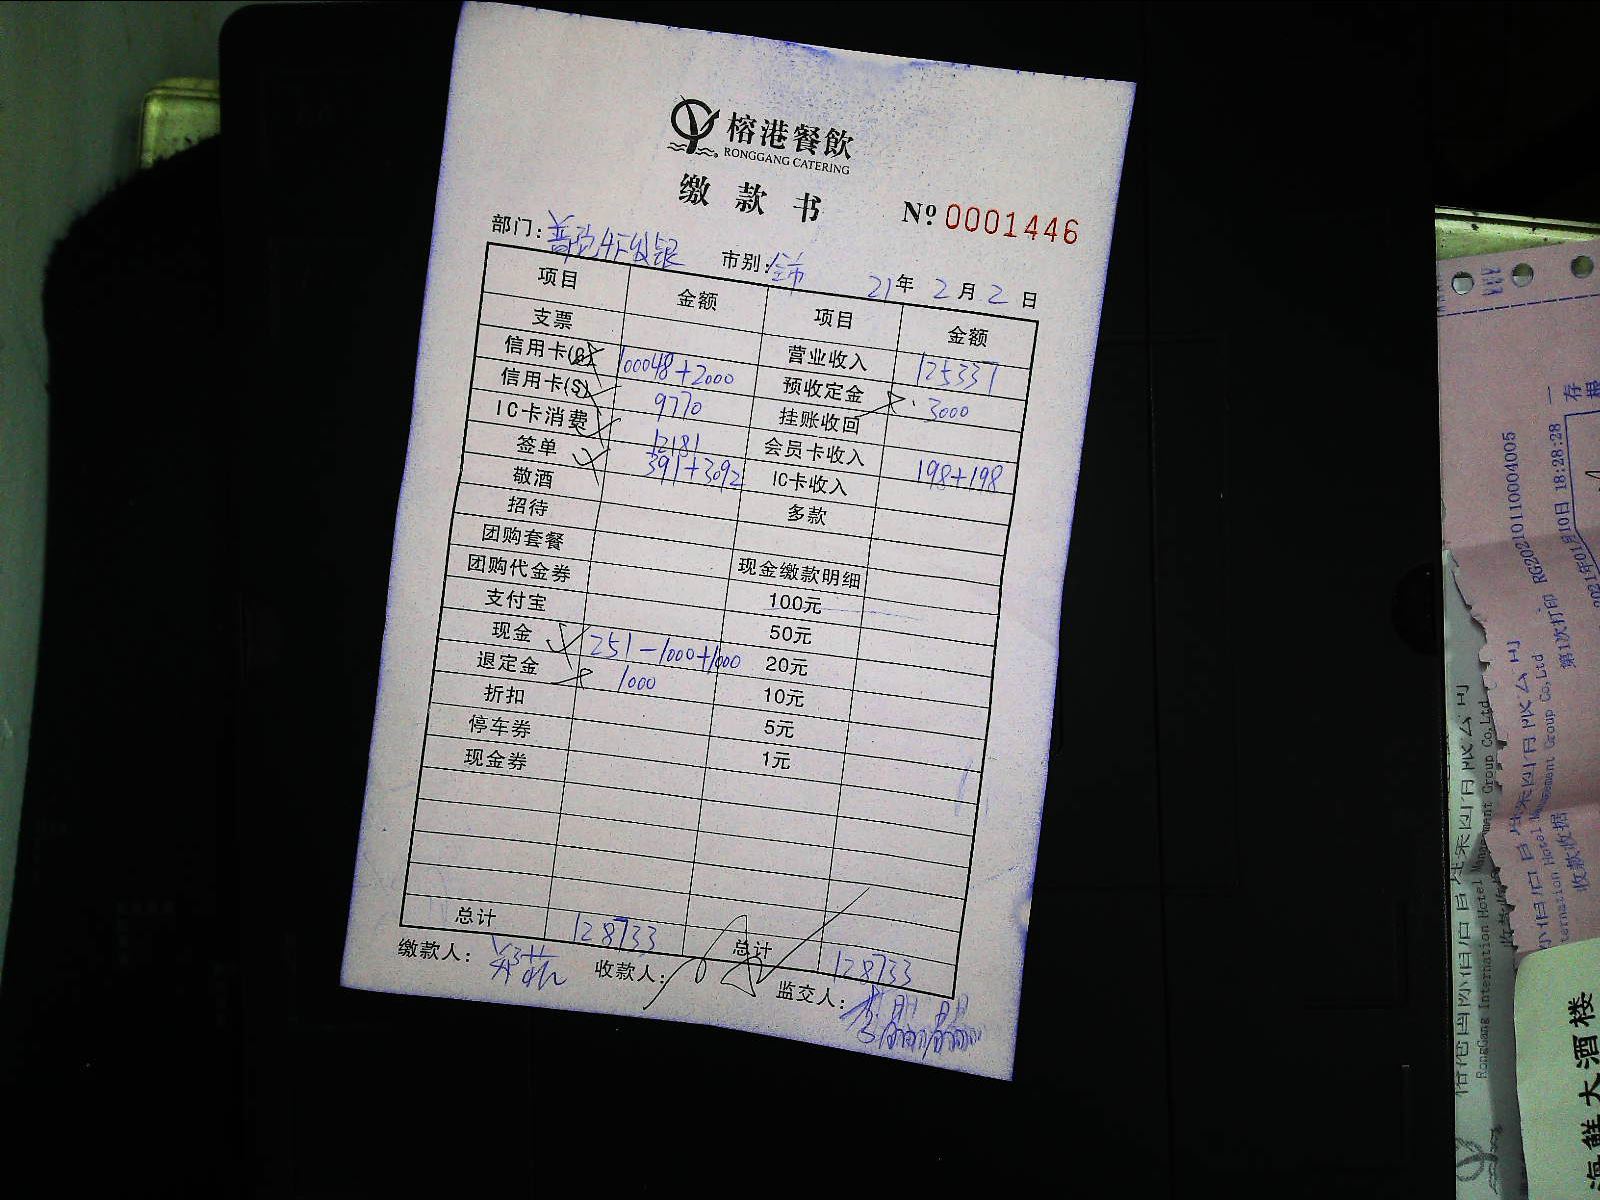 榕港餐飲
RONGGANG CATERING
缴款书 № 0001446
部门: 市别: 全市 21年2月2日
项目 金额 项目 金额
支票 营业收入 125337
信用卡 100048+2000 预收定金 3000
信用卡(S) 9770 挂账收回
IC卡消费 12181 会员卡收入
签单 391+3092 IC卡收入 198+198
敬酒 多款
招待
团购套餐 现金缴款明细
团购代金券 100元
支付宝 50元
现金 251-1000+1000 20元
退定金 1000 10元
折扣 5元
停车券 1元
现金券
总计 128733 总计 128733
缴款人: 收款人: 监交人:
存
第1次打印 RG202101110004005
2021年01月10日 18:28:28
收款收据
RongGang International Hotel Management Group Co,Ltd
海鲜大酒楼